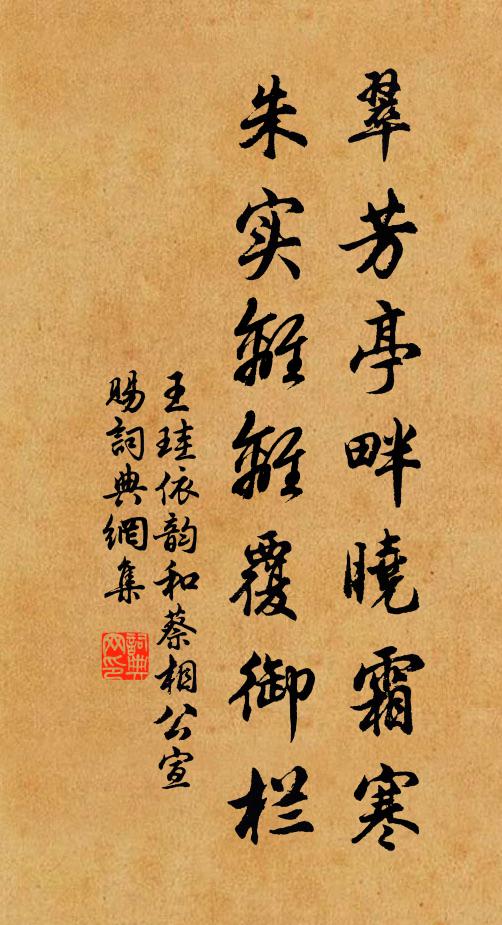 翠芳亭畔曉霜寒
朱实離離覆御栏
王珪依韵和蔡相公宣
賜詞典網集
詞典网印